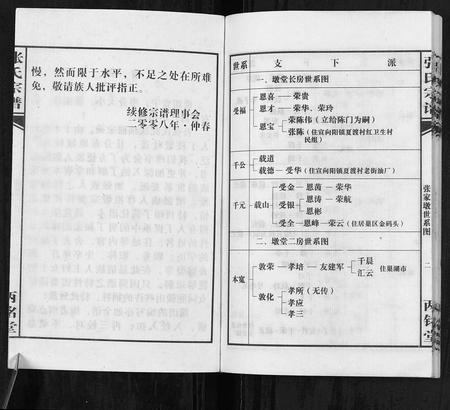 张氏宗谱
慢，然而限于水平，不足之处在所难
免，敬请族人批评指正。
续修宗谱理事会
二零零八年·仲春
两铭堂
张氏宗谱
张家墩世系图
二
两铭堂
世系 支 下 派
一、墩堂长房世系图
受福 恩喜 荣贵
恩才 荣华、荣玲
恩宝 荣陈伟（立给陈门为嗣）
张陈（住宣向阳镇夏渡村红卫生村
民组）
千公 载道
载德 受华（住宣向阳镇夏渡村老街油厂）
千元 载山 受金 恩茵 荣华
受银 恩涛 荣航
恩彬
受全 恩峰 荣云（住居巢区金码头）
二、墩堂二房世系图
本宽 敦荣 孝培 友建军 千晨
汇云 住巢湖市
敦化 孝所（无传）
孝应
孝三